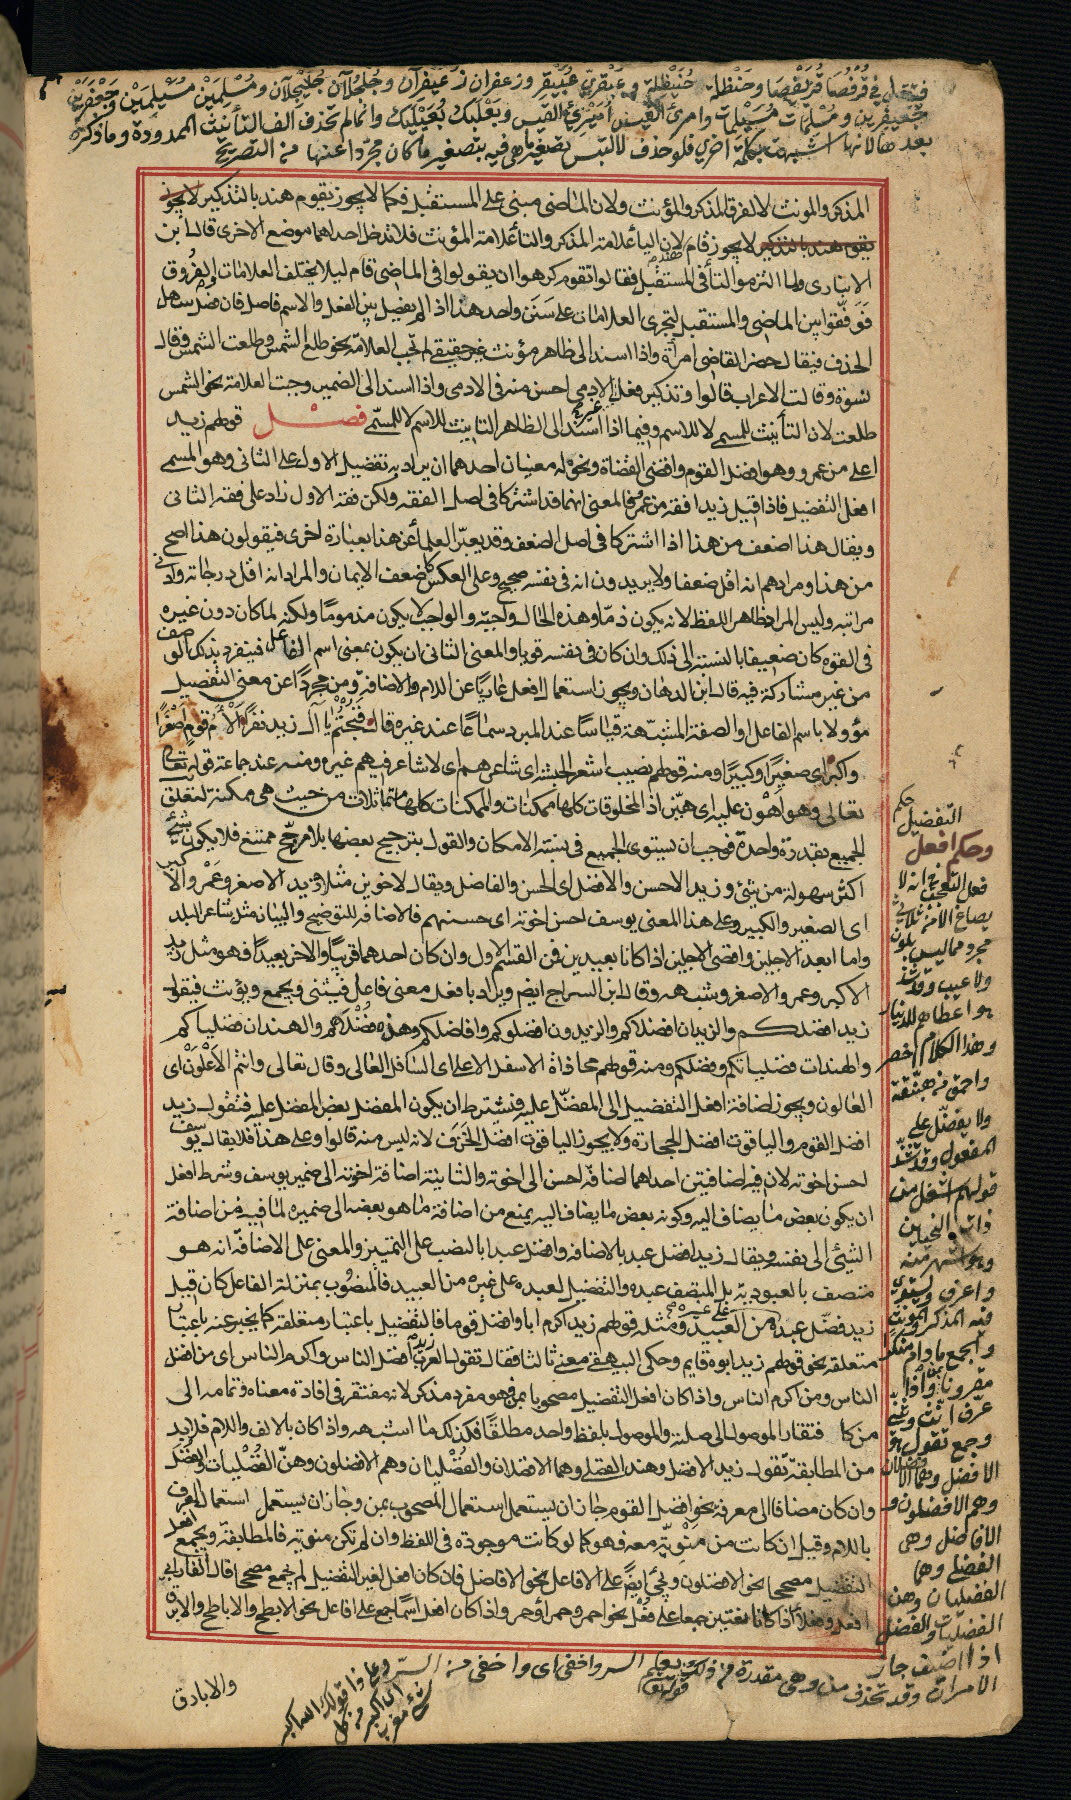 فتقول في قرفصا قريفصا وحنظلة حنيظلة وعبقري عبيقري وزعفران زعيفران وجلجلان جليجلان ومسلمين مسيلمين وجعفرين
جعيفرين ومسلمات مسيلمات وامرئ القيس اميرئ القيس وبعلبك بعيلبك وانما لم تحذف الف التأنيث الممدودة وما ذكر
بعدها لانها اشبهت بكلمة اخرى فلو حذف لالتبس تصغير ما هي فيه بتصغير ما كان مجردا عنها من التصريح
المذكر والمونث لا لفرق المذكر والمؤنث ولان الماضي مبني على المستقبل فكما لا يجوز يقوم هند بالتذكير لا يجوز
يقوم هند بالتذكير لا يجوز قام لان اليا علامة المذكر والتا علامة المؤنث فلا تدخل احداهما موضع الاخرى قال ابن
الانباري ولما التزموا التا في المستقبل فقالوا تقوم كرهوا ان يقولوا في الماضي قام ليلا يختلف العلامات والفروق
فوفقوا بين الماضي والمستقبل لتجري العلامتان على سنن واحد هذا اذا لم يفصل بين الفعل والاسم فاصل فان فصل سهل
الحذف فيقال حضر القاضي امرأة واذا اسند الى ظاهر مؤنث غير حقيقي لم تجب العلامة نحو طلع الشمس وطلعت الشمس وقال
نسوة وقالت الاعراب قالوا وتذكير فعل غير الادمي احسن منه في الادمي واذا اسند الى الضمير وجبت العلامة نحو الشمس
طلعت لان التأنيث للمسمى لا للاسم وفيما اذا اسند الى الظاهر التانيث للاسم لا للمسمى فصل قولهم زيد
اعلى من عمرو وهو افضل القوم واقضى القضاة ونحوه له معنيان احدهما ان يراد به تفضيل الاول على الثاني وهو المسمى
افعل التفضيل فاذا قيل زيد افقه من عمرو فالمعنى انهما قد اشتركا في اصل الفقه ولكن فقه الاول زاد على فقه الثاني
ويقال هذا اضعف من هذا اذا اشتركا في اصل الضعف وقد يعبر العلماء عن هذا بعبارة اخرى فيقولون هذا اصح
من هذا ومرادهم انه اقل ضعفا ولا يريدون انه في نفسه صحيح وعلى العكس كاضعف الايمان والمراد انه اقل درجاته وادنى
مراتبه وليس المراد ظاهر اللفظ لانه يكون ذما وهذه الحال واجبة والواجب لا يكون مذموما ولكنه لما كان دون غيره
في القوة كان ضعيفا بالنسبة الى ذلك وان كان في نفسه قويا والمعنى الثاني ان يكون بمعنى اسم الفاعل فينفرد بذلك الوصف
من غير مشاركة فيه قال ابن الدهان ويجوز استعمال افعل عاريا عن اللام والاضافة ومن مجردا عن معنى التفضيل
مؤولا باسم الفاعل او الصفة المشبهة قياسا عند المبرد سماعا عند غيره قال قبحتم يا آل زيد نفرا الأم قوم اصغرا
واكبرا اي صغيرا وكبيرا ومنه قولهم نصيب اشعر الحبشة اي شاعرهم اي لا شاعر فيهم غيره ومنه عند جماعة قوله تعالى
تعالى وهو اهون عليه اي هين اذ المخلوقات كلها ممكنات والممكنات كلها متماثلات من حيث هي ممكنة لتعلق
الجميع بقدرة واحدة فوجب ان يستوى الجميع في نسبة الامكان والقول بترجيح بعضها بلا مرجح ممتنع فلا يكون شئ
اكثر سهولة من شئ وزيد الاحسن والافضل اى الحسن والفاضل ويقال لاخوين مثلا زيد الاصغر وعمرو الاكبر
اى الصغير والكبير وعلى هذا المعنى يوسف احسن اخوته اى حسنهم فالاضافة للتوضيح والبيان مثل شاعر البلد
واما ابعد الاجلين واقصى الاجلين اذا كانا بعيدين فمن القسم الاول وان كان احدهما قريبا والاخر بعيدا فهو مثل زيد
الاكبر وعمرو الاصغر وشبهه وقال ابن السراج ايضا ويراد بافعل معنى فاعل فيثنى ويجمع ويؤنث فيقول
زيد افضلكم والزيدان افضلاكم والزيدون افضلوكم وافاضلكم وهذه فضلاكم والهندان فضلياكم
والهندات فضلياتكم وفضلكم ومنه قولهم محاذاة الاسفل الاعلى اى السافل العالى وقال تعالى وانتم الاعلون اى
العالون ويجوز اضافة افعل التفضيل الى المفضل عليه فيشترط ان يكون المفضل بعض المفضل عليه فتقول زيد
افضل القوم والياقوت افضل الحجارة ولا يجوز الياقوت افضل الخزف لانه ليس منه قالوا وعلى هذا فلا يقال يوسف
احسن اخوته لان فيه اضافتين احداهما اضافة احسن الى اخوته والثانية اضافة اخوته الى ضمير يوسف وشرط افعل
ان يكون بعض ما يضاف اليه وكونه بعض ما يضاف اليه يمنع من اضافة ما هو بعضه الى ضميره لما فيه من اضافة
الشئ الى نفسه ويقال زيد افضل عبد بالاضافة وافضل عبدا بالنصب على التمييز والمعنى على الاضافة انه هو
متصف بالعبودية بل المتصف عبده والتفضيل لعبده على غيره من العبيد فالمنصوب بمنزلة الفاعل كان قيل
زيد فضل عبده على غيره من العبيد ومثله قولهم زيد اكرم ابا وافضل قوما فالتفضيل باعتبار متعلقه كما يخبر عنه باعتبار
متعلقه نحو قولهم زيد ابوه قايم وحكى البيهقي معنى ثالثا فقال تقول العرب زيد افضل الناس واكرم الناس اى من افضل
الناس ومن اكرم الناس واذا كان افعل التفضيل مصحوبا بمن فهو مفرد مذكر لانه مفتقر في افادة معناه وتمامه الى
من كا فتقار الموصول الى صلته والموصول بلفظ واحد مطلقا فكذلك ما اشبهه واذا كان بالالف واللام فلا بد
من المطابقة تقول زيد الافضل وهند الفضلى وهما الافضلان والفضليان وهم الافضلون وهن الفضليات والفضل
وان كان مضافا الى معرفة نحو افضل القوم جاز ان يستعمل استعمال المصحوب بمن وجاز ان يستعمل استعمال المعرف
باللام وقيل ان كانت من منوية معه فهو كما لو كانت موجودة في اللفظ وان لم تكن منوية فالمطابقة ويجمع افعل
التفضيل مصححا نحو الافضلون ويجئ ايضا على الافاعل نحو الافاضل فان كان افعل لغير التفضيل لم يجمع مصححا قال الفارابي
افعل وفعلا اذا كانا نعتين جمعا على فعل نحو احمر وحمرا وحمر واذا كان افعل اسما جمع على افاعل نحو الابطح والاباطح والابرق
والابارق
حكم
التفضيل
وحكم افعل
فعل التعجب في انه لا
يصاغ الا من ثلاثي
مجرد مما ليس بلون
ولا عيب وقد شذ
هو اعطاهم للدينار
وهذا الكلام اخصر
واحمق من هبنقة
ولا يفضل على
المفعول وقد شذ
قولهم اشغل من
ذات النحيين
وهو اشهر منه
واعرف ويستوي
فيه المذكر والمونث
والجمع ما دام منكرا
مقرونا بمن واذا
عرف انث وثني
وجمع تقول هو
الافضل وهما الافضلان
وهم الافضلون و
الافاضل وهي
الفضلى وهما
الفضليان وهن
الفضليات والفضل
اذا اضيف جاز
الامران وقد تحذف من وهي مقدرة ومن ذلك قوله تعالى يعلم السر واخفى اى واخفى من السر
وعلى هذا قولك الله اكبر
اى اكبر من كل
شئ مغرب